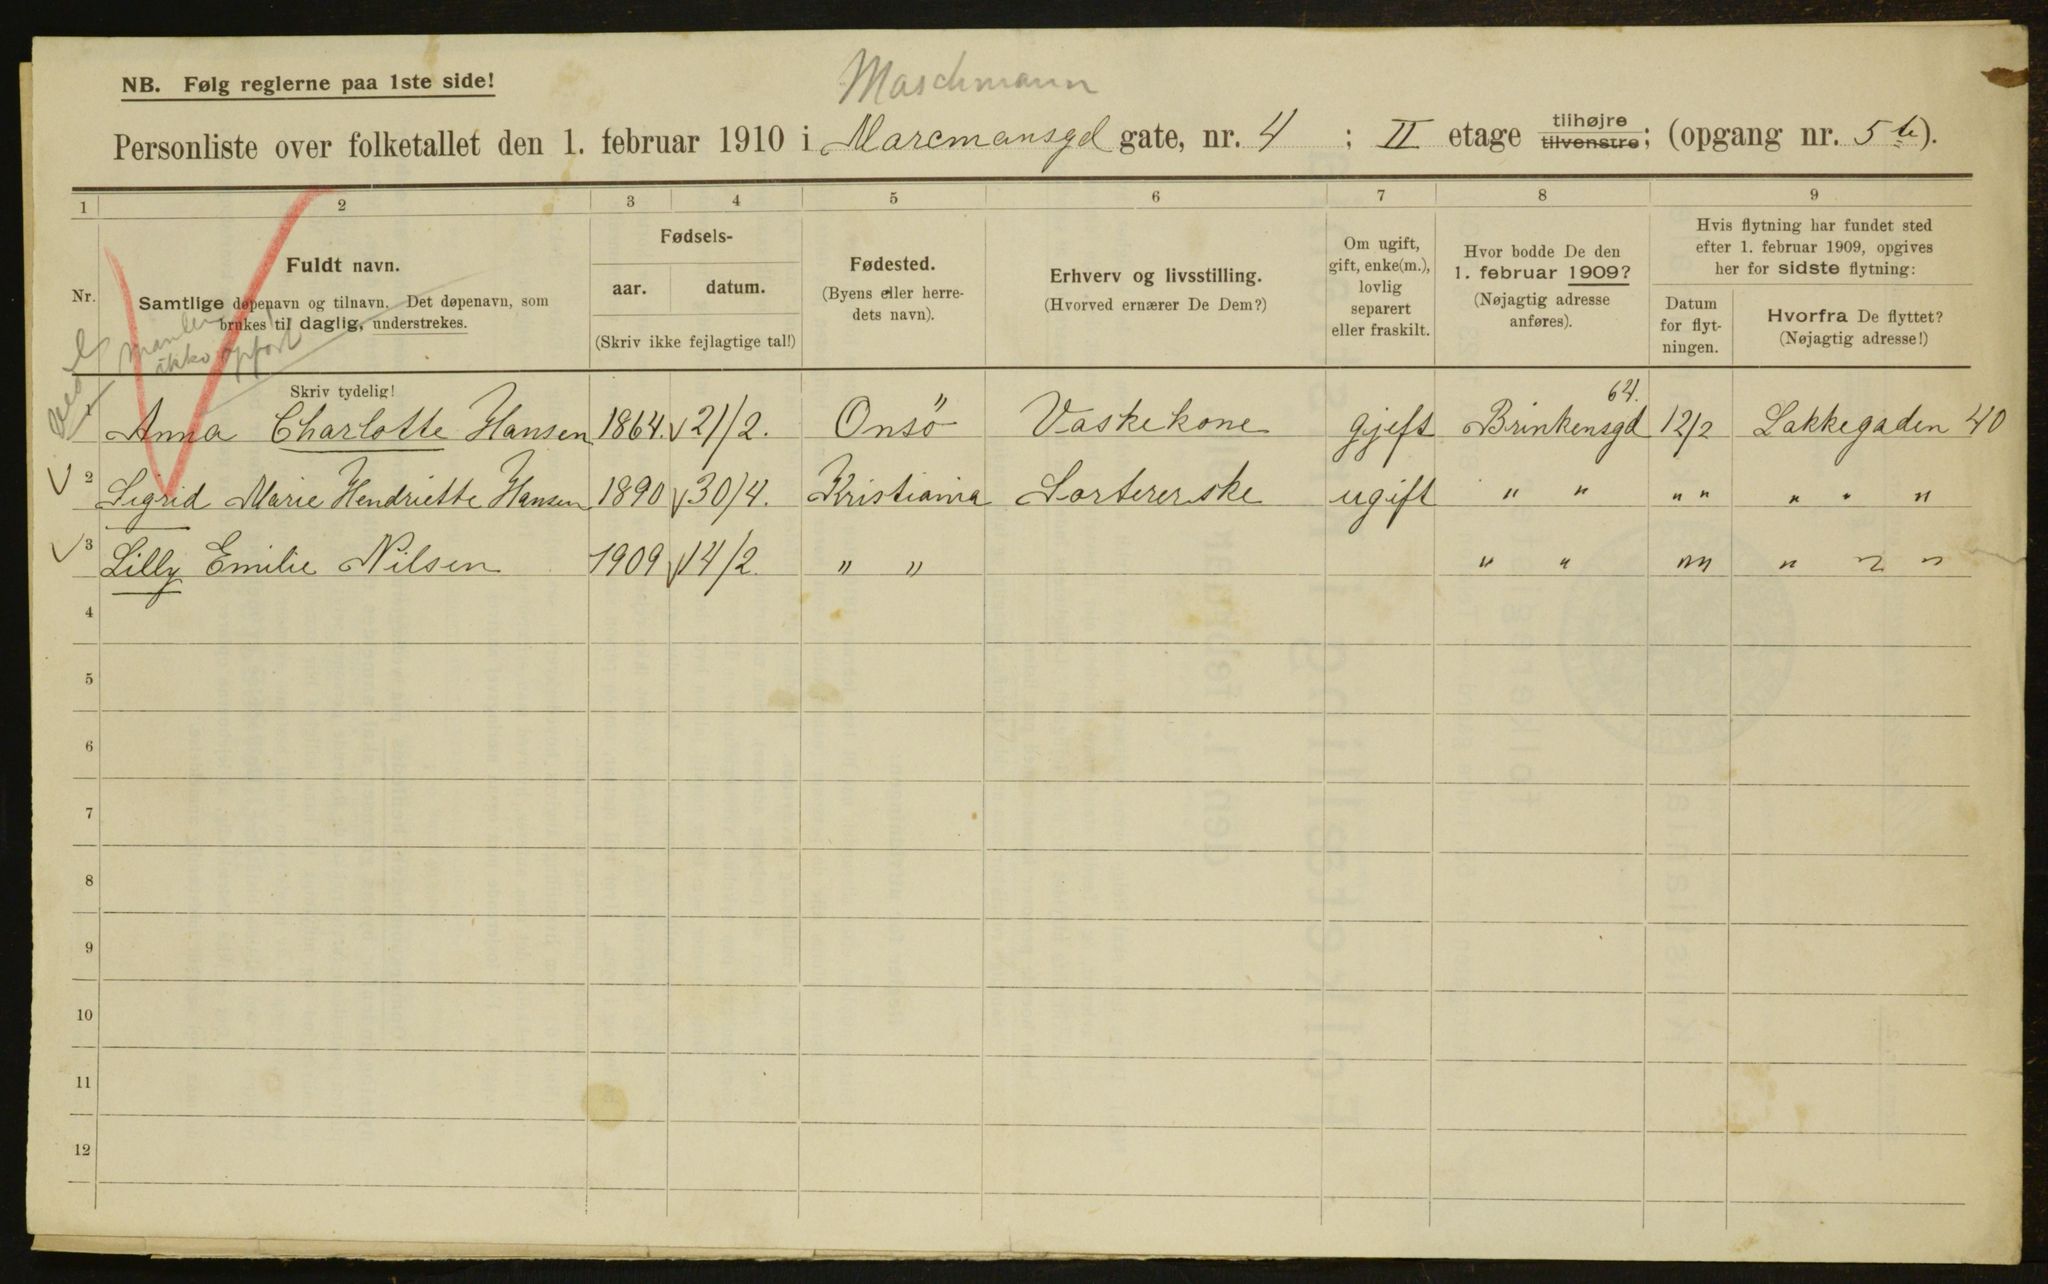 Maschmann
NB. Følg reglerne paa 1ste side!
Personliste over folketallet den 1. februar 1910 i Marcmansgd gate, nr. 4 ; II etage tilhøjre tilvenstre; (opgang nr. 5te).
1 2 3 4 5 6 7 8 9
Nr.
Fuldt navn.
Samtlige døpenavn og tilnavn. Det døpenavn, som
brukes til daglig, understrekes.
Skriv tydelig!
Manden
ikke opført
Fødsels-
aar. datum.
(Skriv ikke fejlagtige tal!)
Fødested.
(Byens eller herre-
dets navn).
Erhverv og livsstilling.
(Hvorved ernærer De Dem?)
Om ugift,
gift, enke(m.),
lovlig
separert
eller fraskilt.
Hvor bodde De den
1. februar 1909?
(Nøjagtig adresse
anføres).
Hvis flytning har fundet sted
efter 1. februar 1909, opgives
her for sidste flytning:
Datum
for flyt-
ningen.
Hvorfra De flyttet?
(Nøjagtig adresse!)
1 Anna Charlotte Hansen 1864. 21/2. Onsö Vaskekone gjift Brinkensgd 64. 12/2 Lakkegaden 40
2 Sigrid Marie Hendriette Hansen 1890 30/4. Kristiania Sortererske ugift " " " " " " "
3 Lilly Emilie Nilsen 1909 14/2. " " " " " " " " "
4
5
6
7
8
9
10
11
12